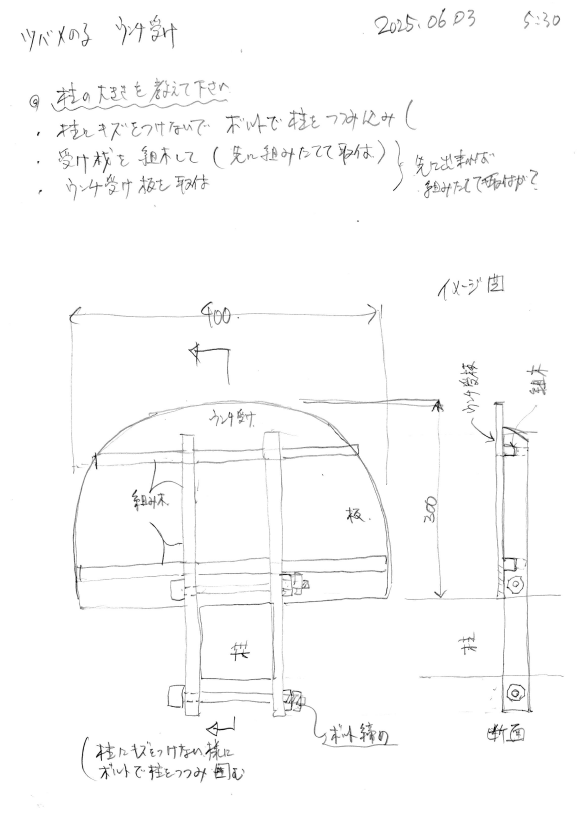 ツバメのる ウンチ受け
2025.06.03 5:30
◎ 柱の大きさを教えて下さい
・ 柱にキズをつけないで ボルトで柱をつつみ込み (
・ 受け板を 組木して ( 先に組みたてて取付 )
・ ウンチ受け板を取付
先に出来れば
組みたてて取付か?
イメージ図
400.
ウンチ受け
組み木
板
300
ウンチ受板
組木
柱
柱
ボルト締め
断面
( 柱にキズをつけない様に
ボルトで柱をつつみ囲む